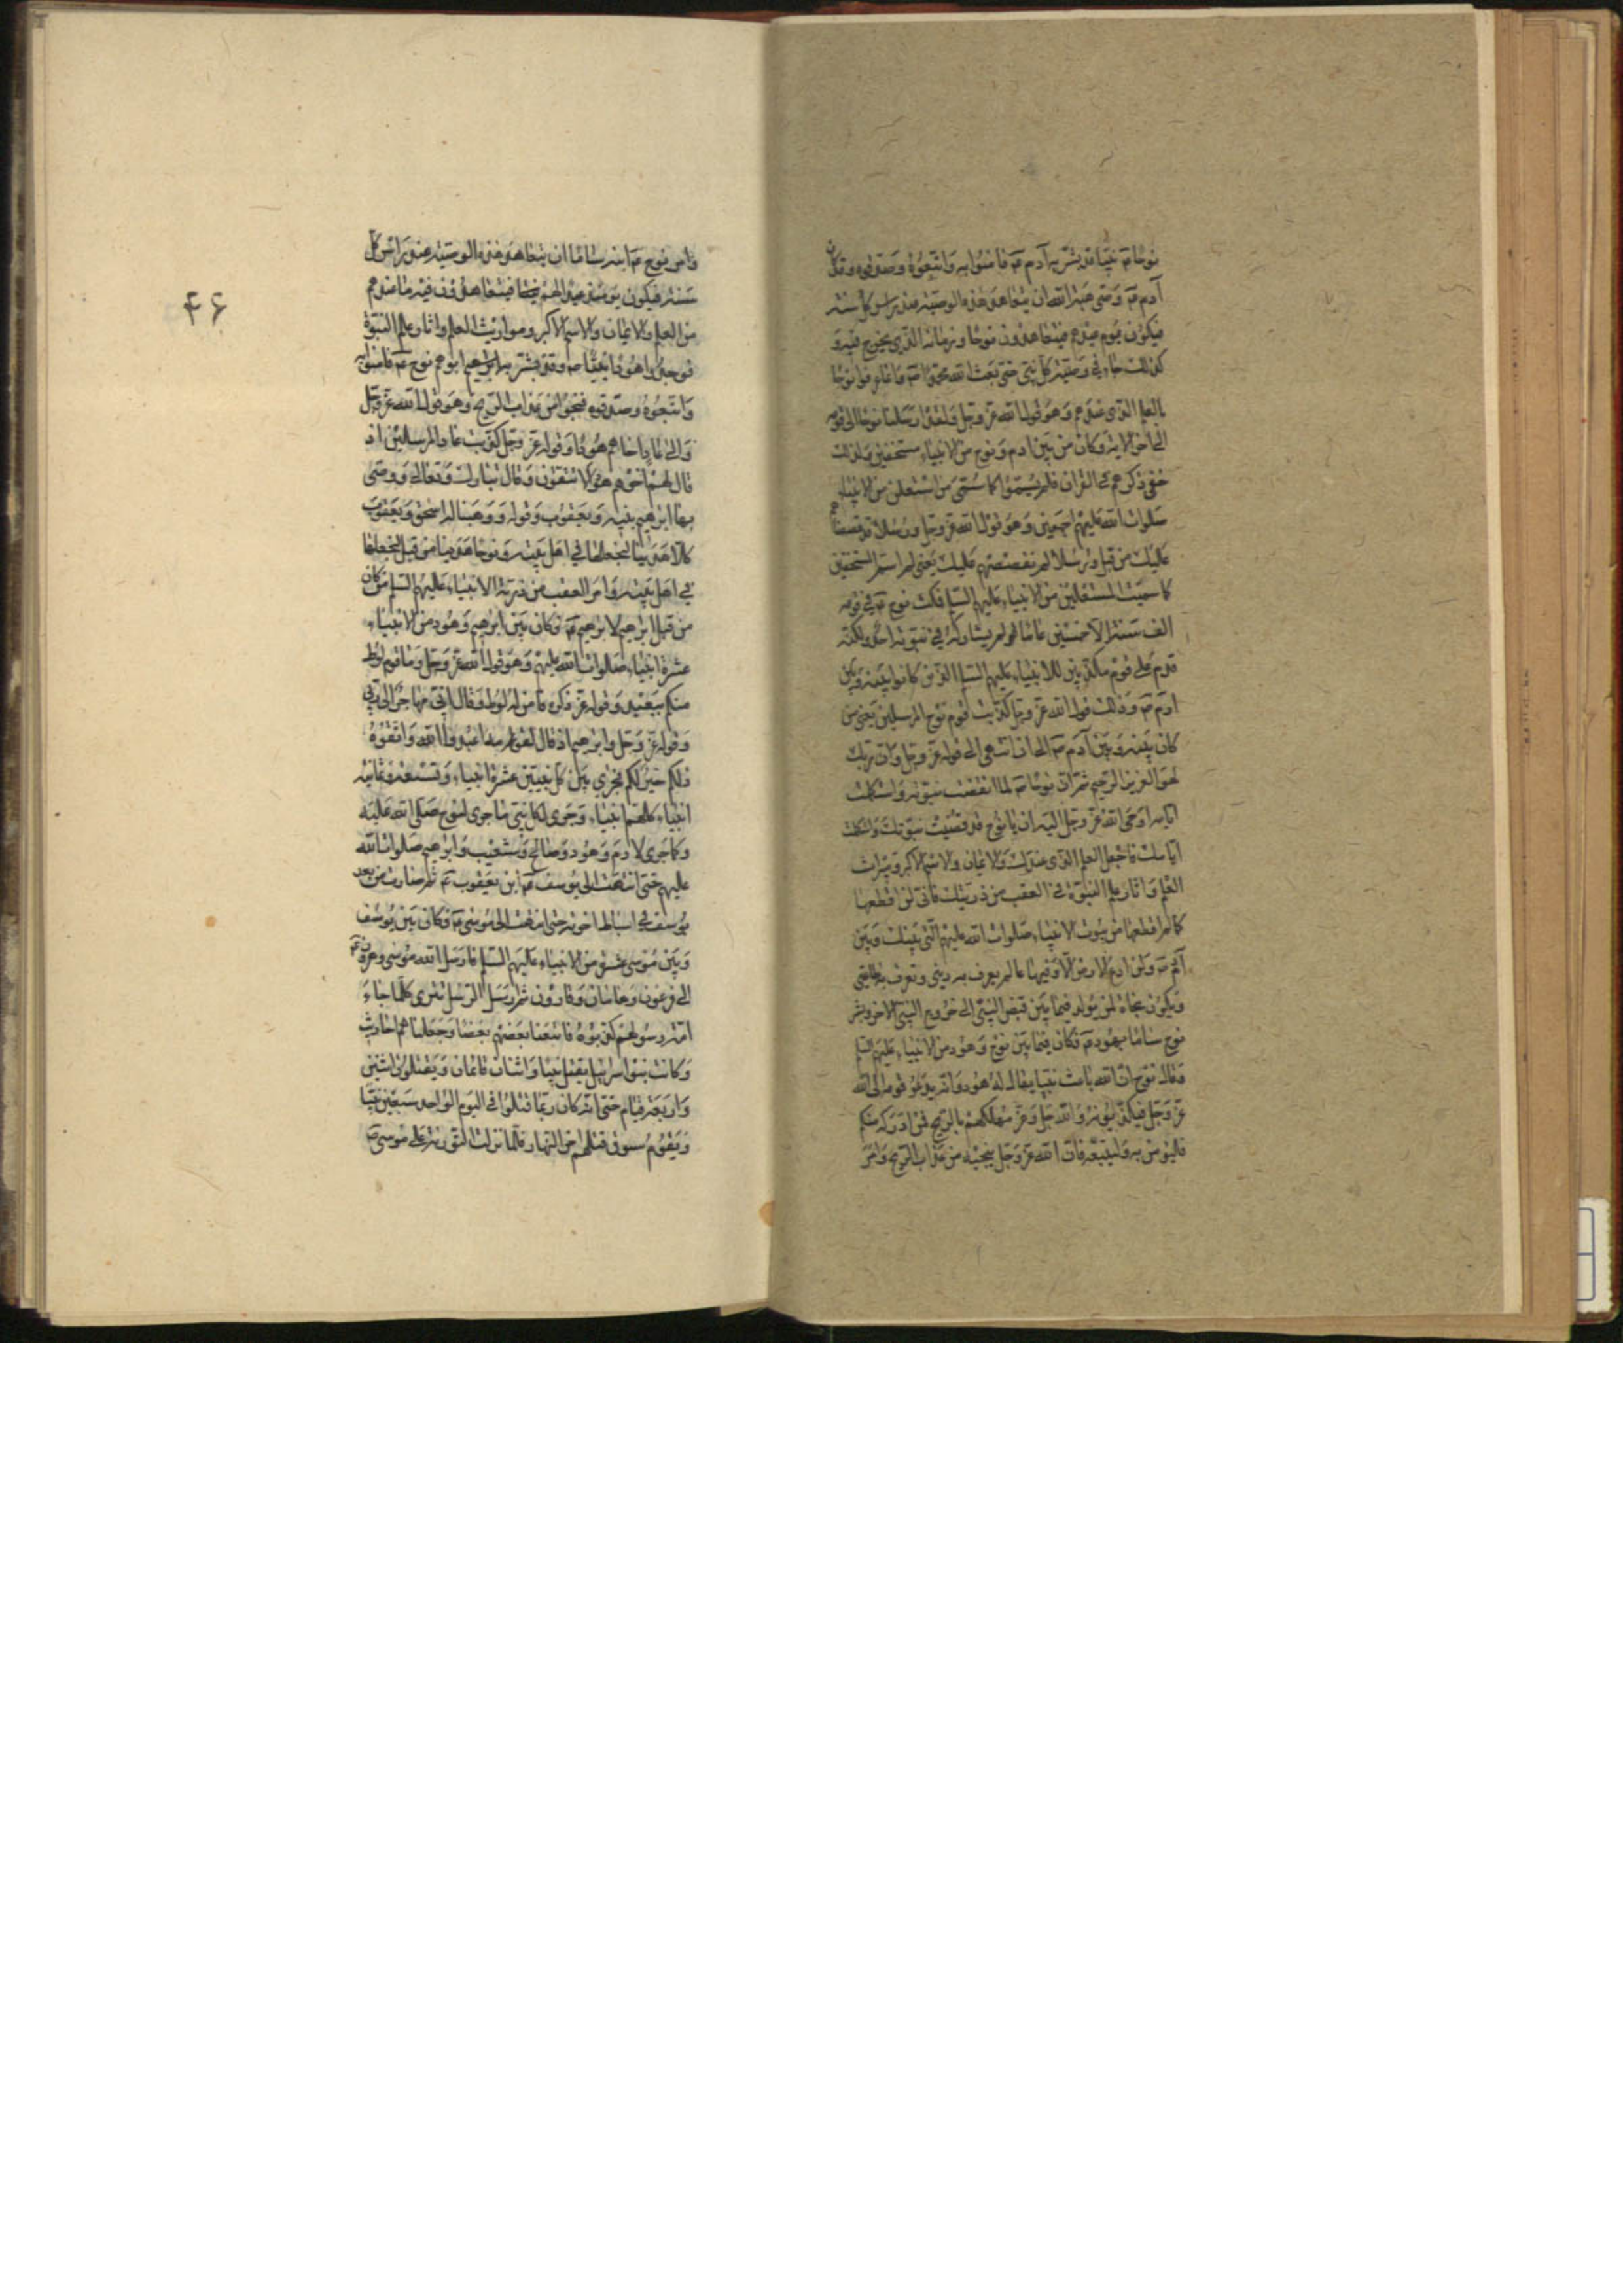 نوحا ۴ نبيا قد بشر به آدم ۴ فامنوا به واتبعوه وصدقوه وقد كان
آدم ۴ وصى هبة الله ان يتعاهد هذه الوصية عند راس كل سنة
فيكون يوم عيدهم فيتعاهدون نوحا وزمانه الذي يخرج فيه و
كذلك جاء في وصية كل نبي حتى بعث الله محمدا ۴ وانما عرفوا نوحا
بالعلم الذي عندهم وهو قول الله عز وجل ولقد ارسلنا نوحا الى قومه
الى اخر الاية وكان من بين ادم ونوح من الانبياء مستخفين ولذلك
خفى ذكرهم في القران فلم يسموا كما سمى من استعلن من الانبياء
صلوات الله عليهم اجمعين وهو قول الله عز وجل ورسلا قد قصصناهم
عليك من قبل ورسلا لم نقصصهم عليك يعنى لم اسم المستخفين
كما سميت المستعلنين من الانبياء عليهم السلم فمكث نوح ۴ في قومه
الف سنة الا خمسين عاما لم يشاركه في نبوته احد ولكنه
قدم على قوم مكذبين للانبياء عليهم السلم الذين كانوا بينه وبين
ادم ۴ وذلك قول الله عز وجل كذبت قوم نوح المرسلين يعنى من
كان بينه وبين آدم ۴ الى ان انتهى الى قوله عز وجل وان ربك
لهو العزيز الرحيم ثم ان نوحا ۴ لما انقضت نبوته واستكملت
ايامه اوحى الله عز وجل اليه ان يا نوح قد قضيت نبوتك واستكملت
ايامك فاجعل العلم الذي عندك والايمان والاسم الاكبر وميراث
العلم واثار علم النبوة في العقب من ذريتك فاني لن اقطعها
كما لم اقطعها من بيوت الانبياء صلوات الله عليهم التي بينك وبين
آدم ۴ ولن ادع الارض الا وفيها عالم يعرف به ديني وتعرف به طاعتي
ويكون نجاة لمن يولد فيما بين قبض النبي الى خروج النبي الاخر وبشر
نوح ساما بهود ۴ وكان فيما بين نوح وهود من الانبياء عليهم السلم
وقال نوح ان الله باعث نبيا يقال له هود وانه يدعو قومه الى الله
عز وجل فيكذبونه والله جل وعز مهلكهم بالريح فمن ادركه منكم
فليؤمن به وليتبعه فان الله عز وجل ينجيه من عذاب الريح وامر
وامر نوح ۴ ابنه ساما ان يتعاهد هذه الوصية عند راس كل
سنة فيكون يومئذ عيدا لهم فيتعاهدون فيه ما عندهم
من العلم والايمان والاسم الاكبر ومواريث العلم واثار علم النبوة
فوجدوا هودا نبيا ۴ وقد بشر به ابوهم نوح ۴ فامنوا به
واتبعوه وصدقوه فنجوا من عذاب الريح وهو قول الله عز وجل
والى عاد اخاهم هودا وقوله عز وجل كذبت عاد المرسلين اذ
قال لهم اخوهم هود الا تتقون وقال تبارك وتعالى ووصى
بها ابرهيم بنيه ويعقوب وقوله ووهبنا له اسحق ويعقوب
كلا هدينا لنجعلها في اهل بيته ونوحا هدينا من قبل لنجعلها
في اهل بيته وامر العقب من ذرية الانبياء عليهم السلم من كان
من قبل ابرهيم لابرهيم ۴ وكان بين ابرهيم وهود من الانبياء
عشرة انبياء صلوات الله عليهم وهو قول الله عز وجل وما قوم لوط
منكم ببعيد وقوله عز ذكره فامن له لوط وقال اني مهاجر الى ربي
وقوله عز وجل وابرهيم اذ قال لقومه اعبدوا الله واتقوه
ذلكم خير لكم فجرى بين كل نبيين عشرة انبياء وتسعة وثمانية
انبياء كلهم انبياء وجرى لكل نبي ما جرى لنوح صلى الله عليه
وكما جرى لادم وهود وصالح وشعيب وابرهيم صلوات الله
عليهم حتى انتهت الى يوسف ۴ ابن يعقوب ۴ ثم صارت من بعد
يوسف في اسباط اخوته حتى انتهت الى موسى ۴ فكان بين يوسف
وبين موسى عشرة من الانبياء عليهم السلم فارسل الله موسى وهرون ۴
الى فرعون وهامان وقارون ثم ارسل الرسل تترى كلما جاء
امة رسولهم كذبوه فاتبعنا بعضهم بعضا وجعلناهم احاديث
وكانت بنو اسرايل يقتل نبيا واثنان قائمان ويقتلون اثنين
واربعة قيام حتى انه كان ربما قتلوا في اليوم الواحد سبعين نبيا
ويقوم سوق قتلهم اخر النهار فلما نزلت التورية على موسى ۴
۴۶